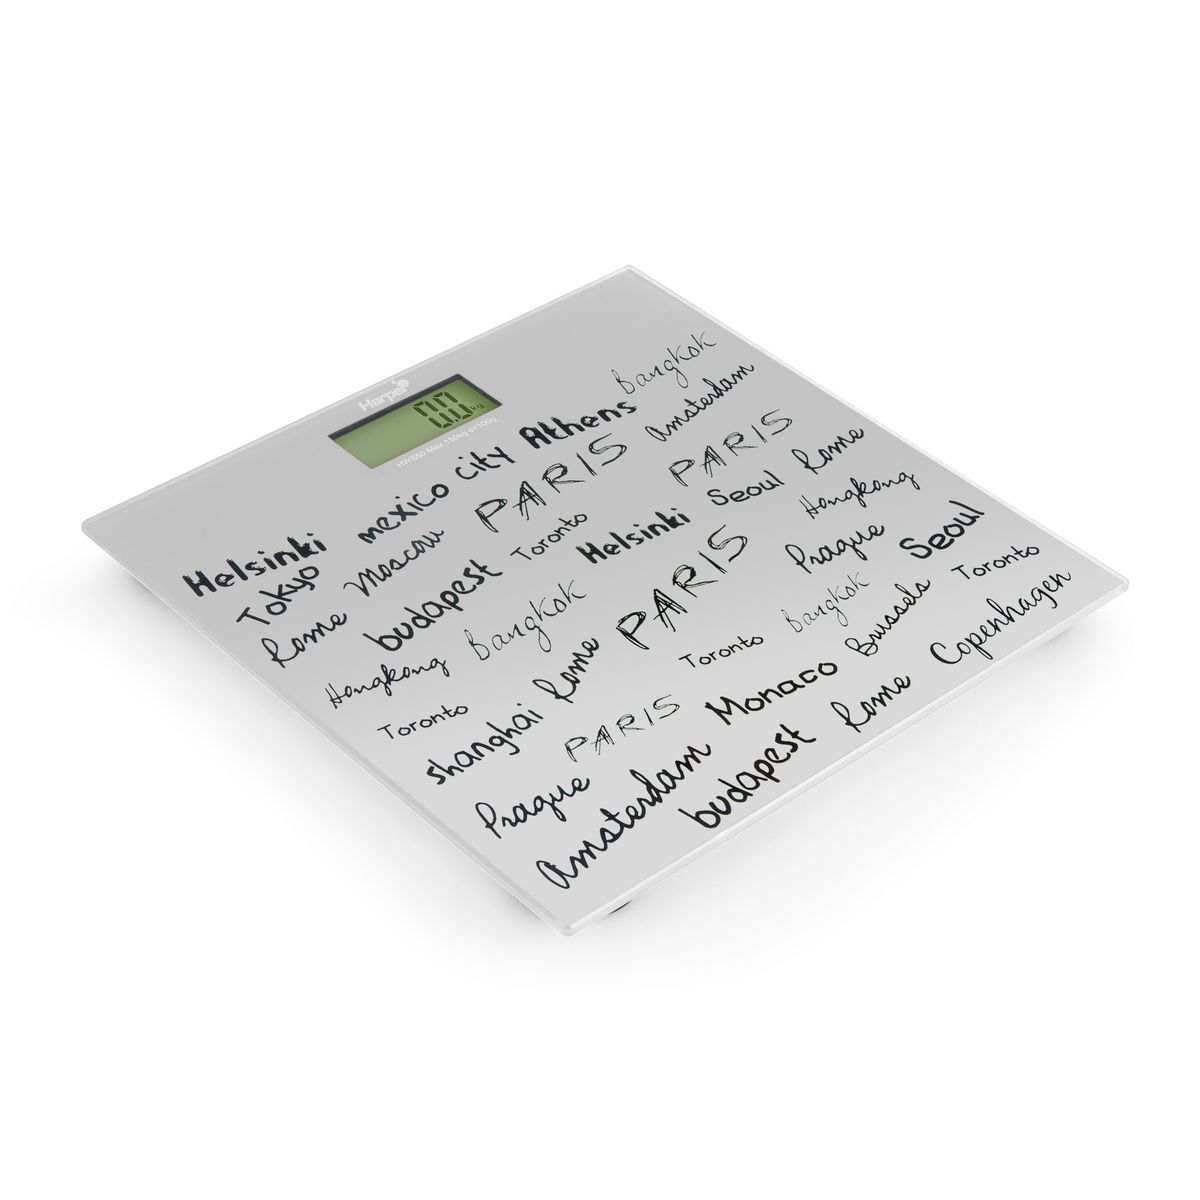 Harper
0.0 kg
HWS50 Max.150kg d=100g
Bangkok
Helsinki mexico city Athens Amsterdam
Tokyo PARIS PARIS Rome
Rome Moscow Toronto Seoul
budapest Helsinki Hongkong
Hongkong Bangkok PARIS Prague Seoul
Toronto Rome Toronto Bangkok Toronto
shanghai Monaco Brussels Copenhagen
PARIS Rome
Prague Amsterdam budapest